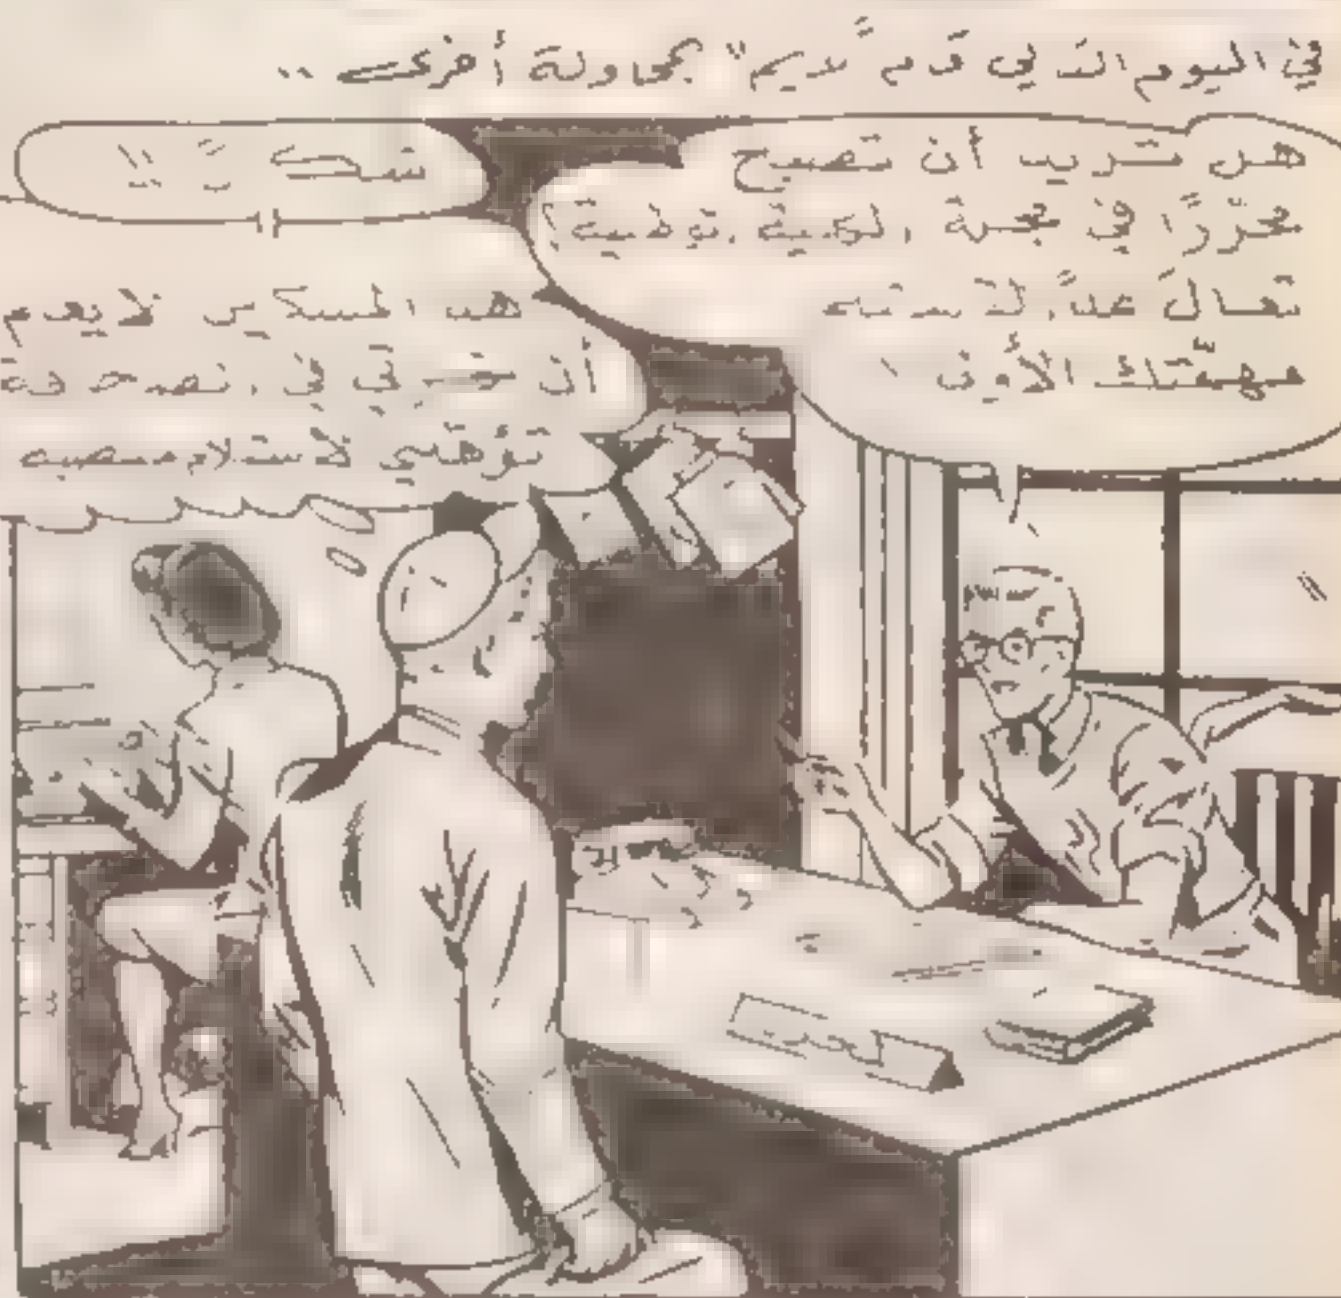 في اليوم التالي قام "نديم" بمحاولة أخرى ..
هل تريد أن تصبح
محرّرًا في مجلة الكمية الوطنية؟
تعال غدًا، لاستلام
مهمّتك الأولى
شكرًا !!
هذا المسكين لا يعلم
أن خبرتي في الصحافة
تؤهّلني لاستلام منصبه